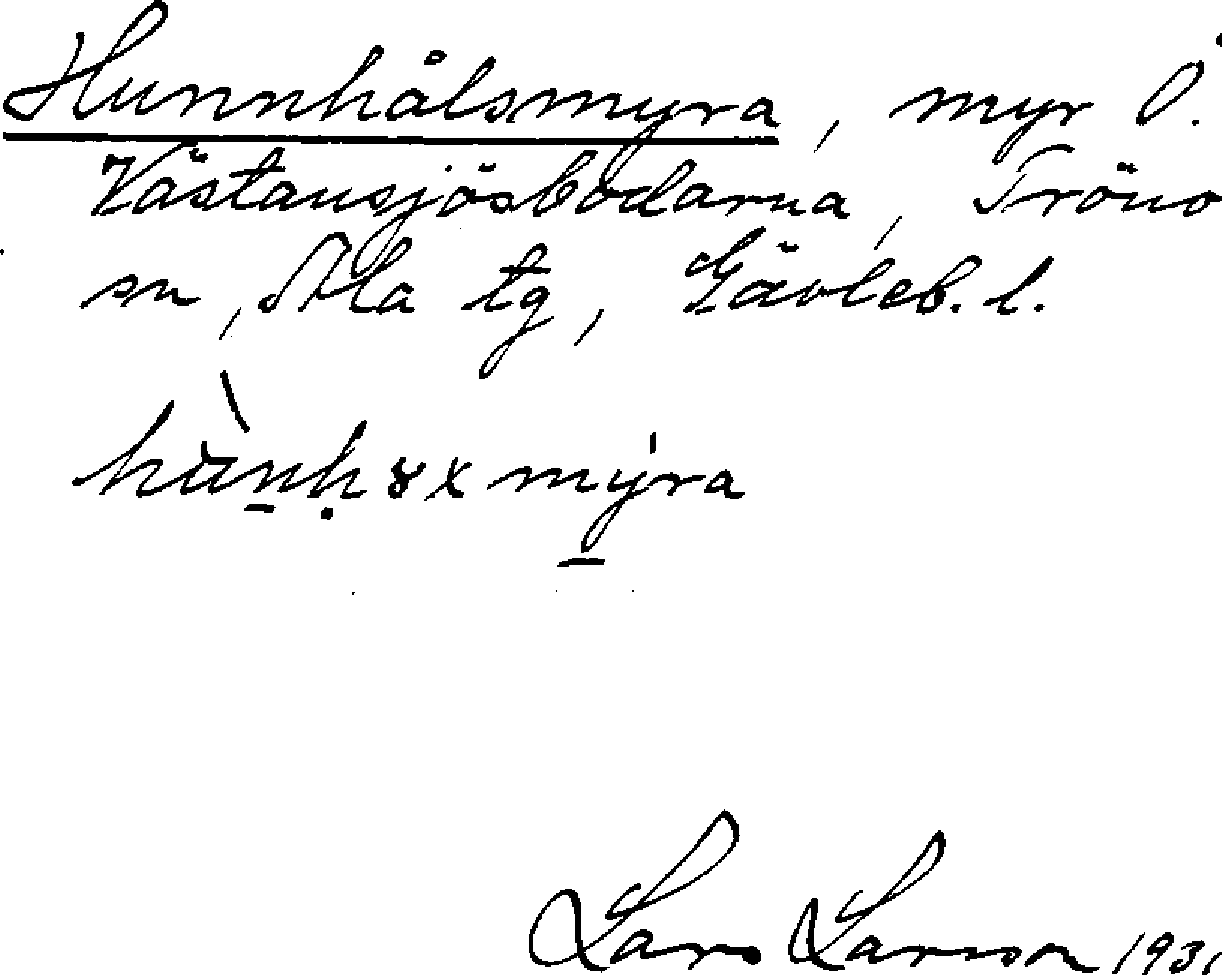 Hunnhålsmyra, myr Ö.
Västansjösbodarna, Trönö
sn, Ala tg, Gävleb. l.
Lars Larson 1931